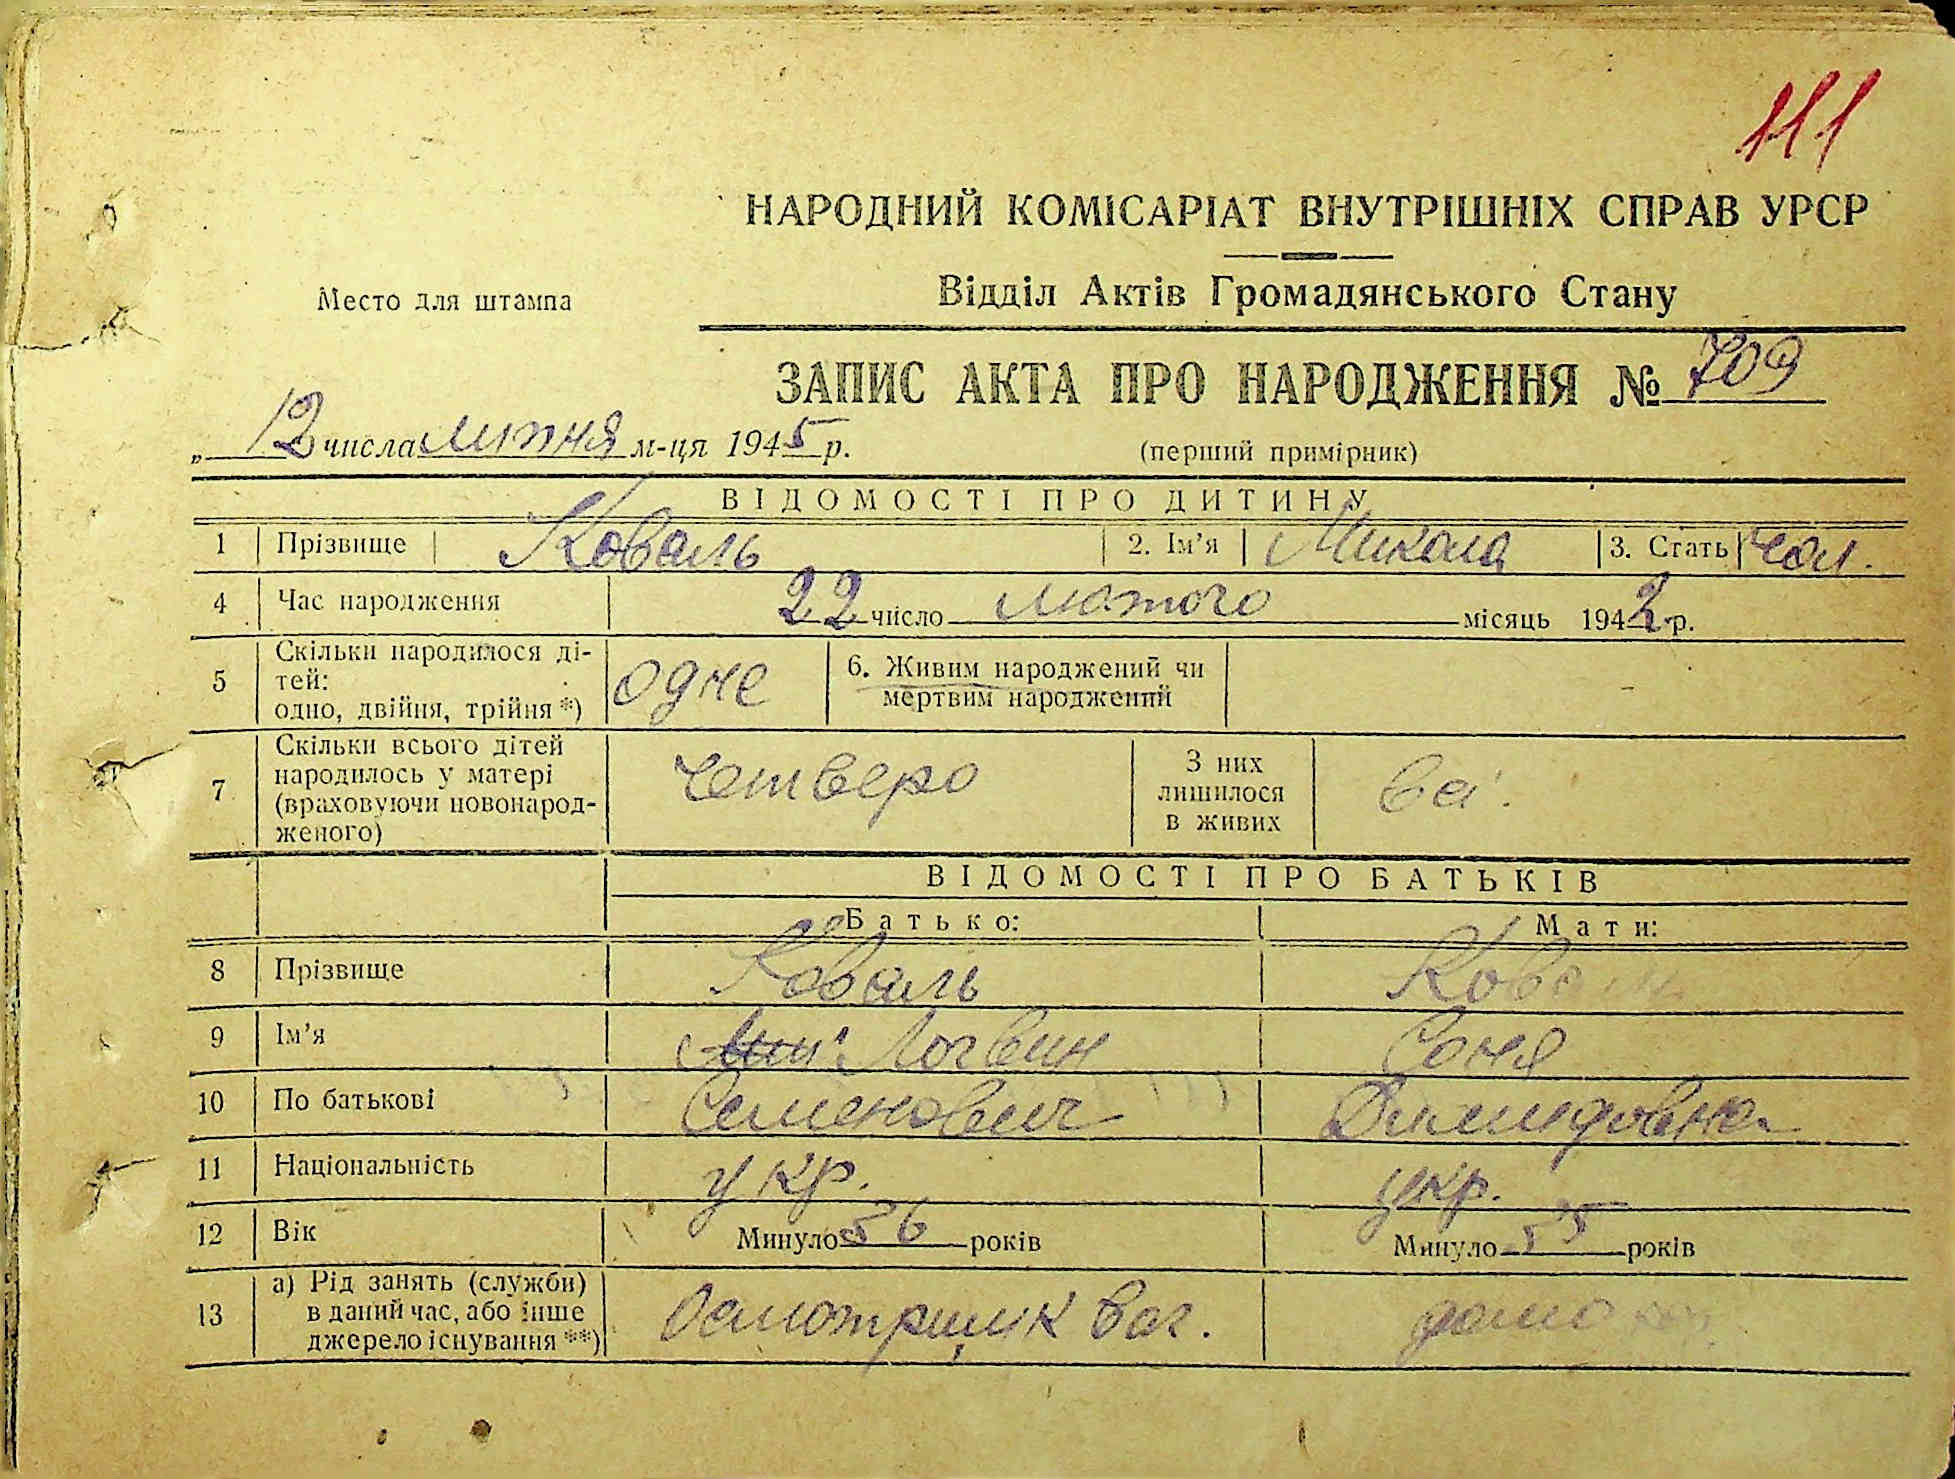 111
НАРОДНИЙ КОМІСАРІАТ ВНУТРІШНІХ СПРАВ УРСР
Место для штампа
Відділ Актів Громадянського Стану
ЗАПИС АКТА ПРО НАРОДЖЕННЯ № 709
„ 12 числа липня м-ця 1945 р.
(перший примірник)
ВІДОМОСТІ ПРО ДИТИНУ
1 Прізвище Коваль 2. Ім’я Микола 3. Стать чол.
4 Час народження 22 число лютого місяць 1942 р.
5 Скільки народилося ді-
тей:
одно, двійня, трійня *)
одне
6. Живим народжений чи
мертвим народжений
–
7 Скільки всього дітей
народилось у матері
(враховуючи новонарод-
женого)
четверо
З них
лишилося
в живих
всі.
ВІДОМОСТІ ПРО БАТЬКІВ
Батько: Мати:
8 Прізвище Коваль Коваль
9 Ім’я Логвин Соня
10 По батькові Семенович Демидовна
11 Національність укр. укр.
12 Вік Минуло 36 років Минуло років
13 а) Рід занять (служби)
в даний час, або інше
джерело існування **)
Осмотрщик ваг. домо